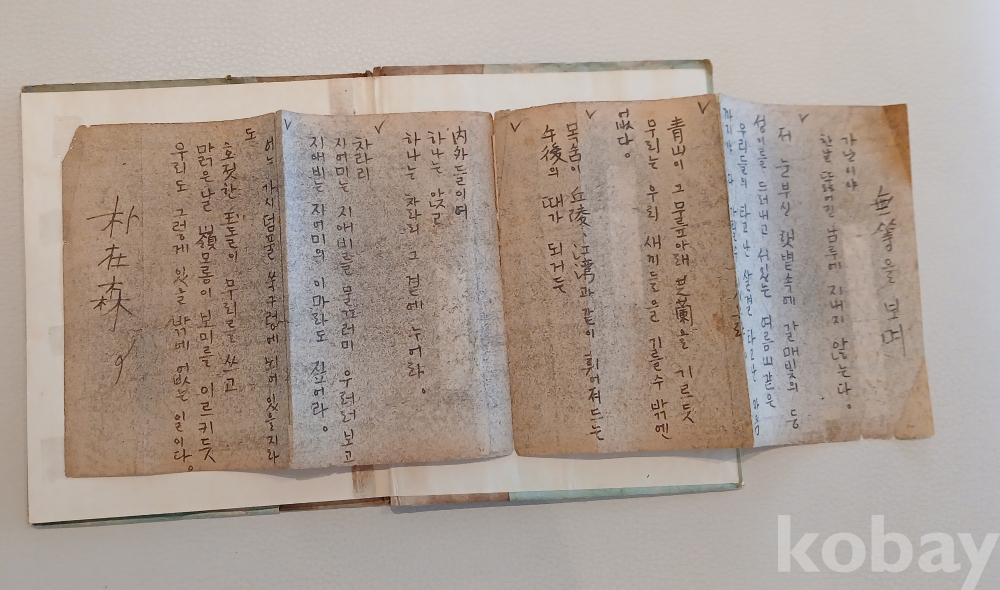 無等을 보며
가난이야
한낱 뚫어진 남루에 지내지 안는다。
저 눈부신 햇볕속에 갈매빛의 등
성이를 드러내고 서있는 여름山같은
우리들의 타고난 살결 타고난 마음
까지야 다 가릴수
靑山이 그 물프아래 芝蘭을 기르듯
우리는 우리 새끼들을 기를수 밖엔
없다。
목숨이 丘陵、과 같이 휘여져드는
午後의 때가 되거든
內外들이여
하나는 앉고
하나는 차라리 그 곁에 누어라。
차라리
지어미는 지애비를 물끄러미 우러러보고
지애비는 지어미의 이마라도 짚어라。
어느 가시덤풀 쑥구렁에 뇌여 있을지라
도
호젓한 玉돌이 무리를 쓰고
맑은날 嶺모롱이 보미를 이르키듯
우리도 그렇게 있을 밖에 없는 일이다。
朴在森
kobay